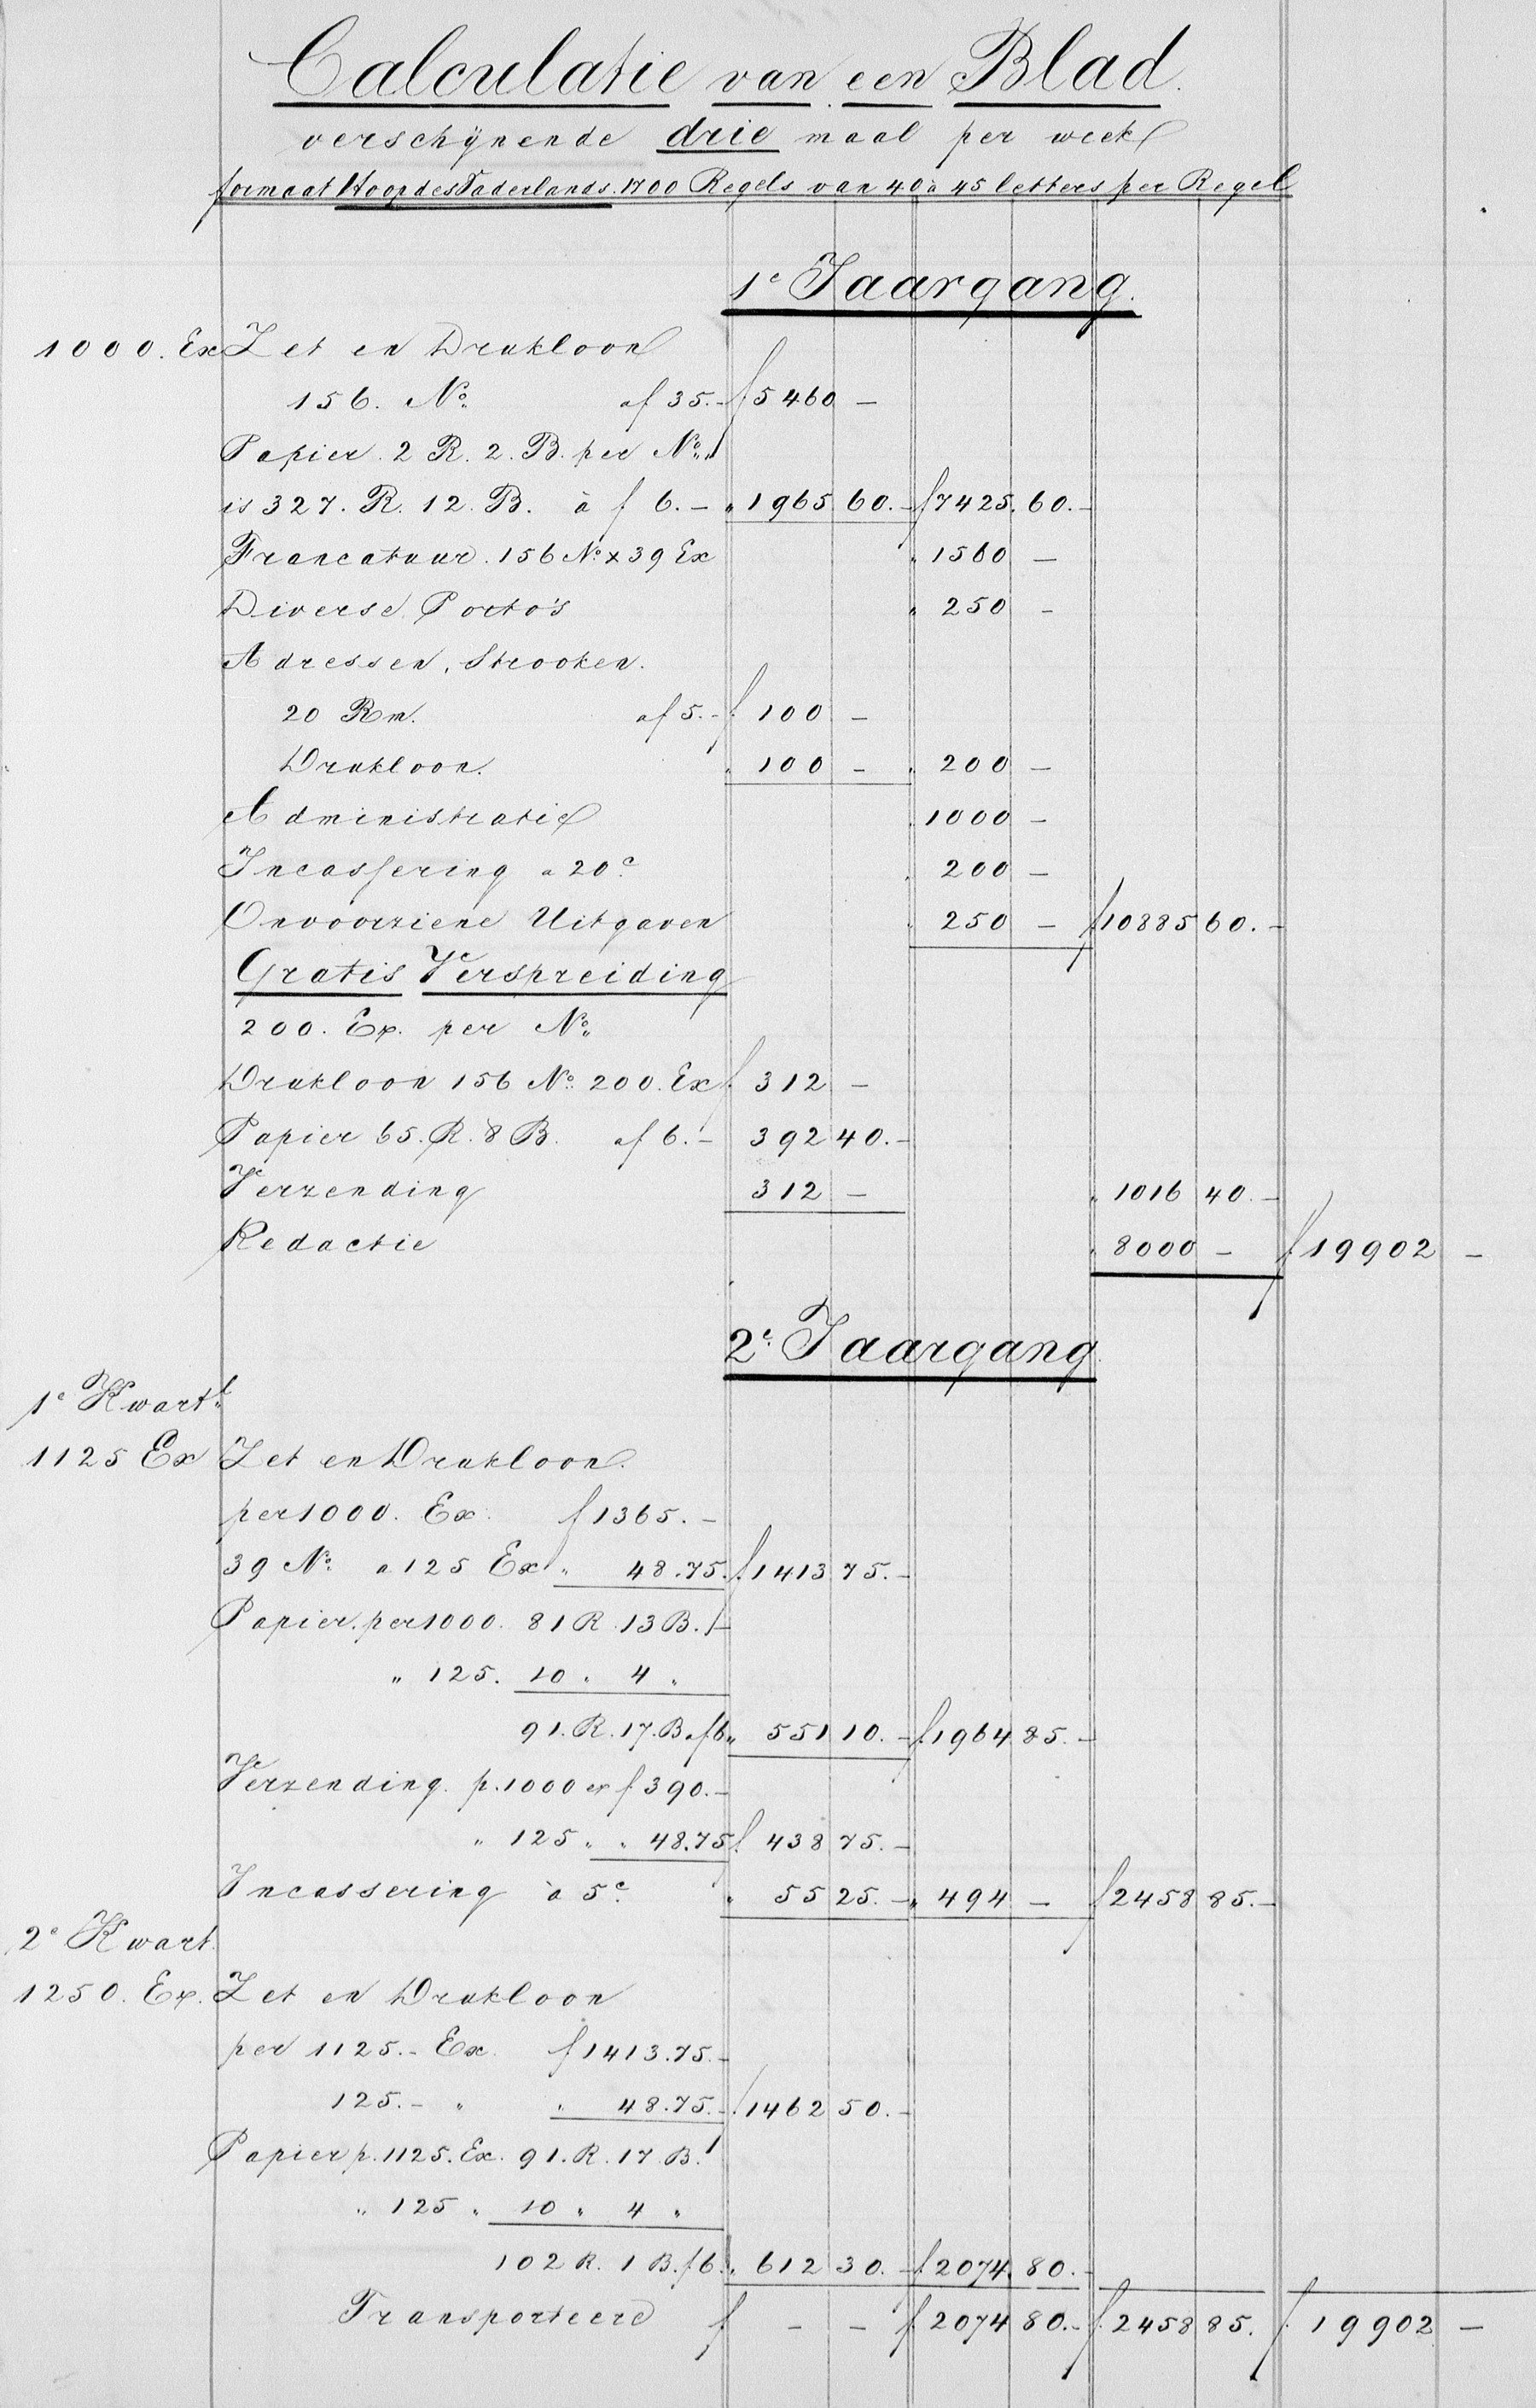 Calculatie van een Blad.
verschijnende drie maal per week
formaat Hoop des Vaderlands. 1700 Regels van 40 à 45 letters per Regel
1e Jaargang.
1000. Ex Zet en Drukloon
156. No. af 35.- f 5460 -
Papier. 2 R. 2. B. per No.
is 327. R. 12. B. à f 6.- " 1965 60.- f 7425.60.-
Francatuur. 156 No x 39 Ex " 1560 -
Diverse Porto's " 250 -
Adressen, Strooken.
20 Rm. af 5.- f 100 -
Drukloon. " 100 - " 200 -
Administratie " 1000 -
Incassering a 20c " 200 -
Onvoorziene Uitgaven " 250 - f 10885 60.-
Gratis Verspreiding
200. Ex. per No.
Drukloon 156 No. 200. Ex f. 312 -
Papier 65. R. 8 B. af 6.- 392 40.-
Verzending 312 - " 1016 40.-
Redactie " 8000 - f. 19902 -
2e Jaargang.
1e Kwartl.
1125 Ex Zet en Drukloon.
per 1000. Ex. f 1365.-
39 No. a 125 Ex " 48.75. f. 1413 75.-
Papier. per 1000. 81 R. 13 B.
" 125. 10 " 4 "
91. R. 17. B. af 6 " 551 10.- f. 1964 85.-
Verzending. p. 1000 ex f. 390.-
" 125 " " 48.75 f. 438 75.-
Incassering à 5c " 55 25.- " 494 - f 2458 85.-
2e Kwart.
1250. Ex. Zet en Drukloon
per 1125.- Ex. f 1413.75.-
125.- " " 48.75.- f. 1462 50.-
Papier p. 1125. Ex. 91. R. 17 B.
" 125 " 10 " 4 "
102 R. 1 B. f 6. " 612 30.- f. 2074 80.-
Transporteere f - - f 2074 80.- f. 2458 85. f. 19902 -